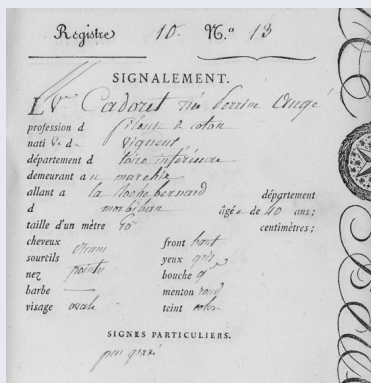 Registre 10. N.º 13
SIGNALEMENT.
L Vᵉ Cadoret née Perrine Augé
profession d fileuse de coton
nati ve d e Vigneux
département d Loire inférieure
demeurant a
allant a la Roche bernard département
d morbihan âgé e de 40 ans;
taille d'un mètre centimètres;
cheveux front haut
sourcils yeux gris
nez pointu bouche
barbe — menton rond
visage ovale teint
SIGNES PARTICULIERS.
peu gravé